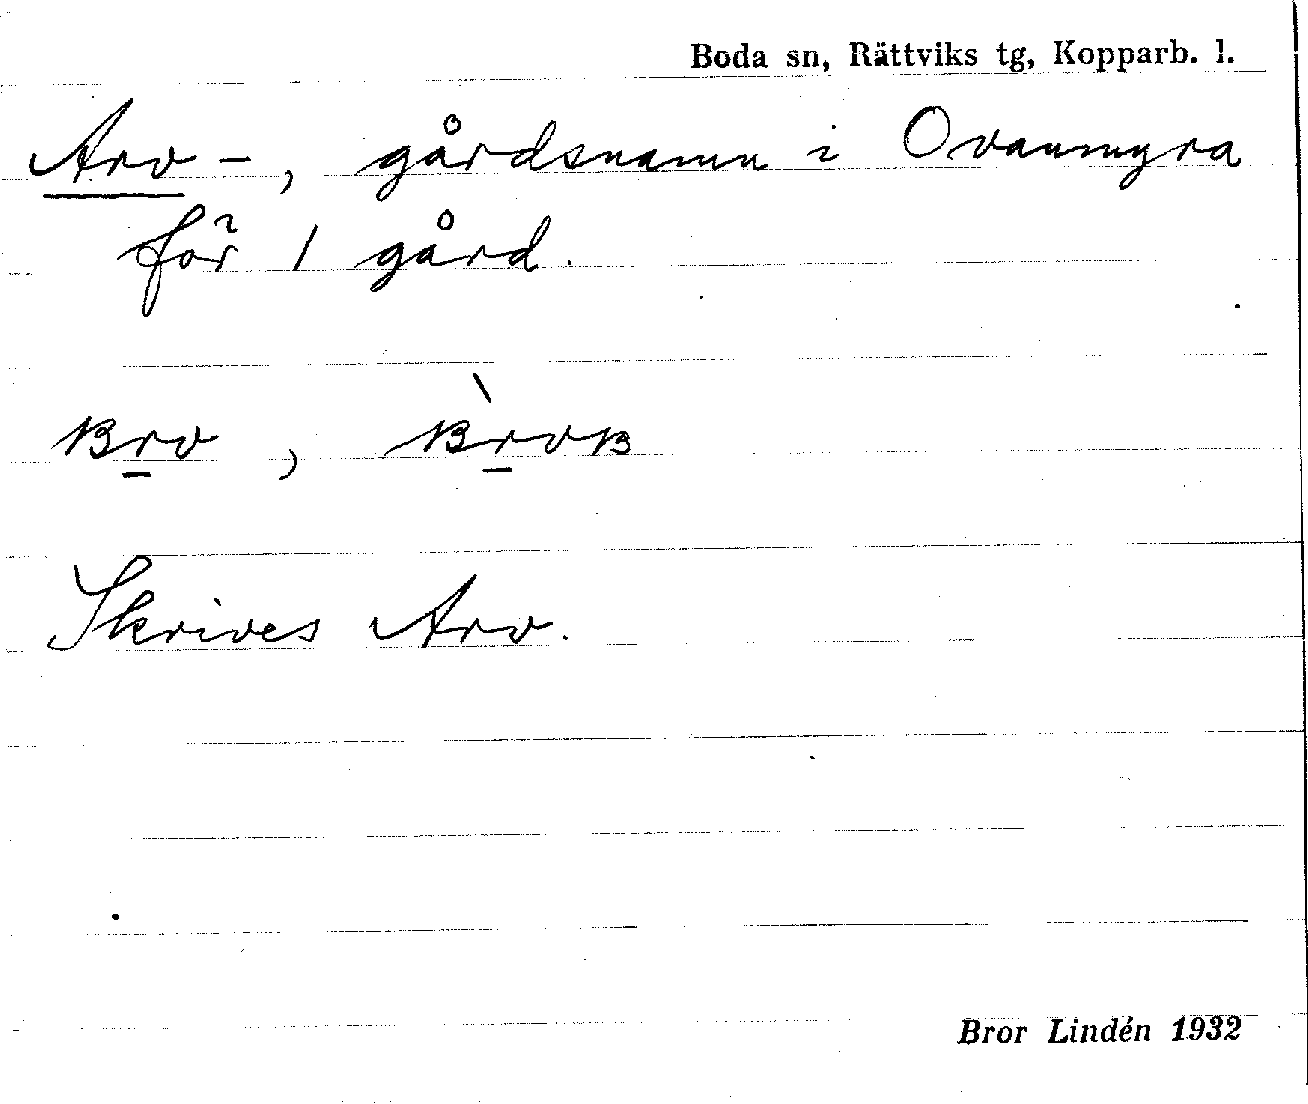 Boda sn, Rättviks tg, Kopparb. l.
Arv-, gårdsnamn i Ovanmyra
för 1 gård.
Skrives Arv.
Bror Lindén 1932